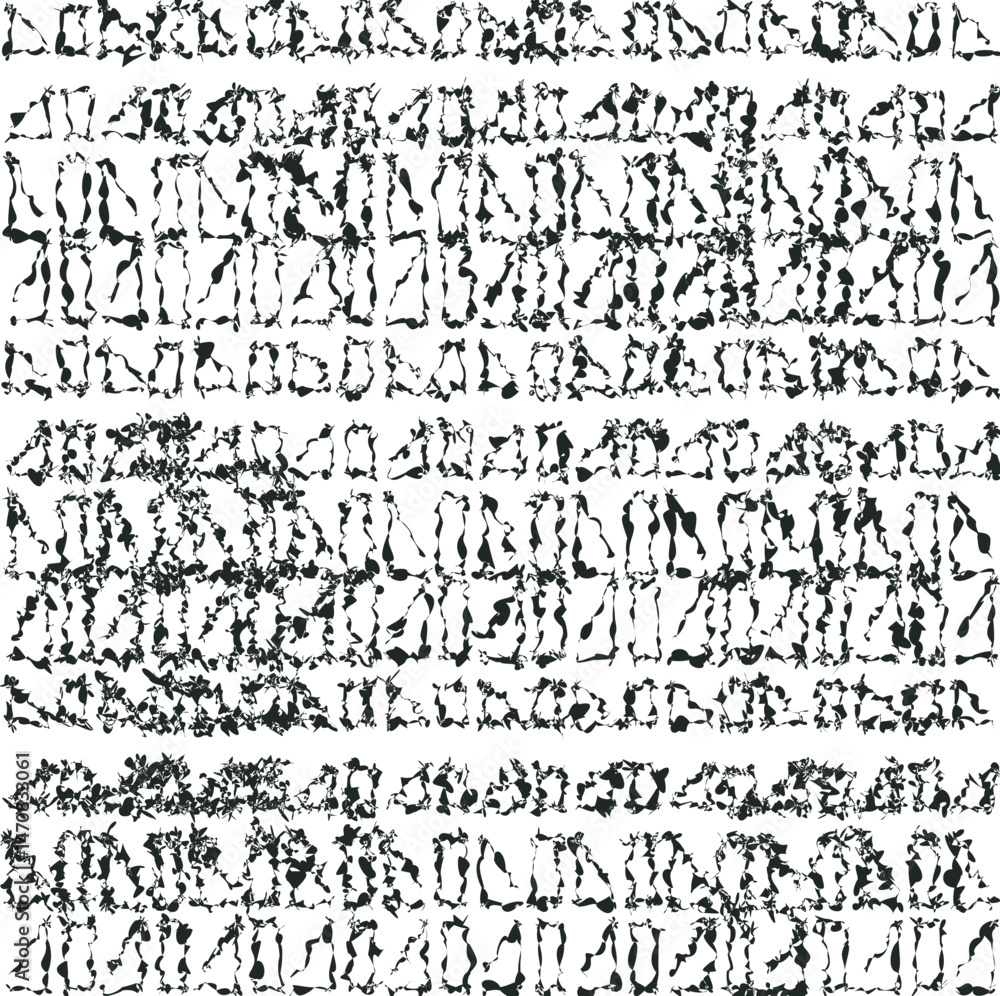 Adobe Stock | #1470853061